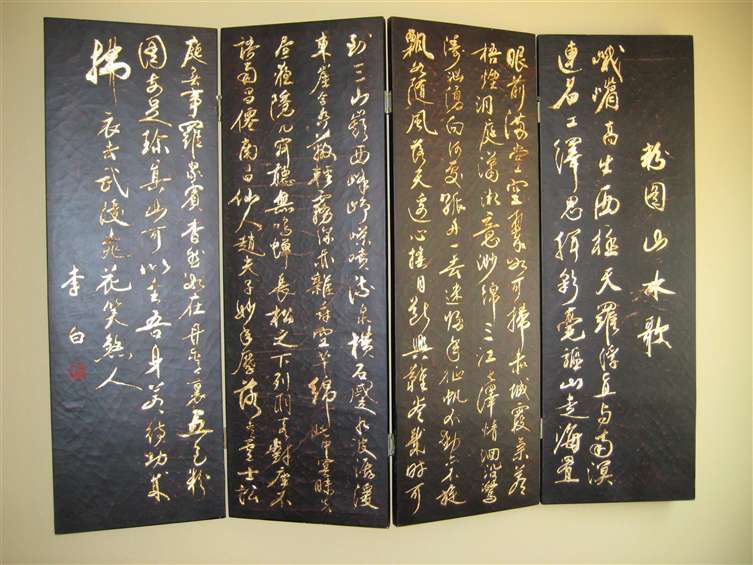 粉图山水歌
峨嵋高出西極天羅浮直与南溟
連名工繹思揮彩毫驅山走海置
眼前滿堂空翠如可掃赤城霞氣蒼
梧煙洞庭瀟湘意渺綿三江七澤情洄沿驚
濤洶湧向何處孤舟一去迷歸年征帆不動亦不旋
飄如隨風落天邊心搖目斷興難盡幾時可
到三山巔西峰崢嶸噴流泉橫石蹙水波潺湲
東崖合沓蔽輕霧深林雜樹空芊綿此中冥昧失
晝夜隱几寂聽無鳴蟬長松之下列羽客對座不
語南昌仙南昌仙人趙夫子妙年歷落青雲士訟
庭無事羅眾賓杳然如在丹青裏五色粉
图安足珍真山可以全吾身若待功成
拂衣去武陵桃花笑煞人
李白